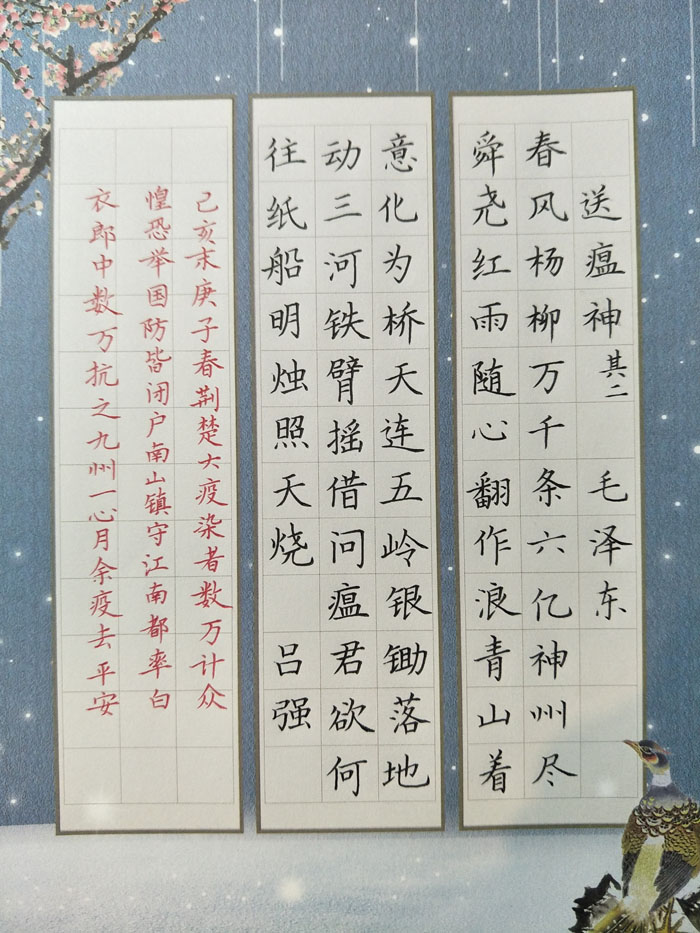 送瘟神其二 毛泽东
春风杨柳万千条六亿神州尽
舜尧红雨随心翻作浪青山着
意化为桥天连五岭银锄落地
动三河铁臂摇借问瘟君欲何
往纸船明烛照天烧 吕强
己亥末庚子春荆楚大疫染者数万计众
惶恐举国防皆闭户南山镇守江南都率白
衣郎中数万抗之九州一心月余疫去平安